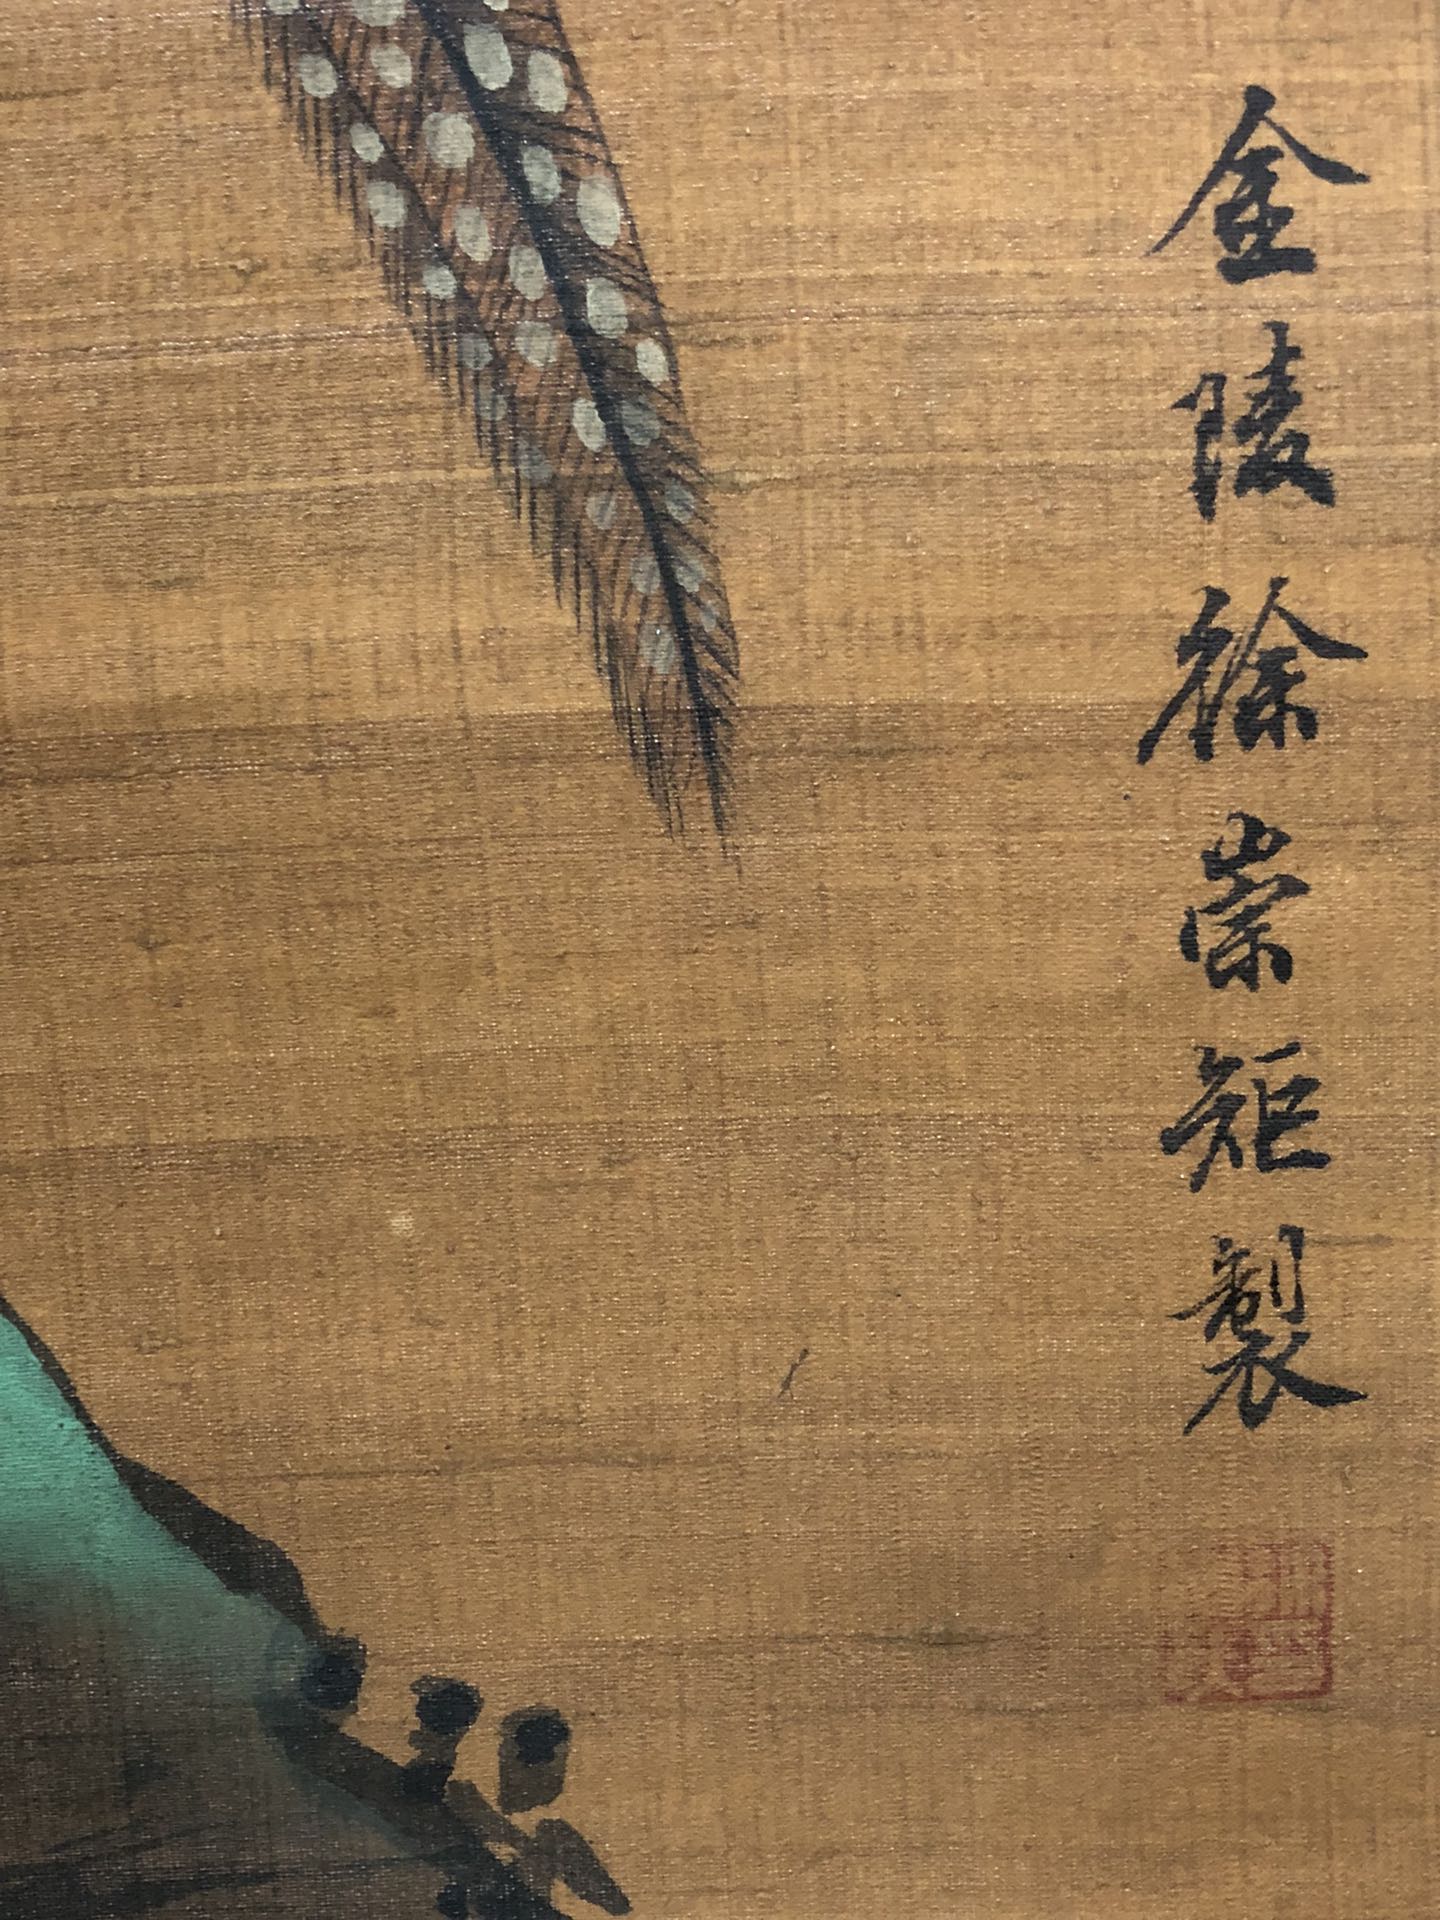 金陵徐崇矩製